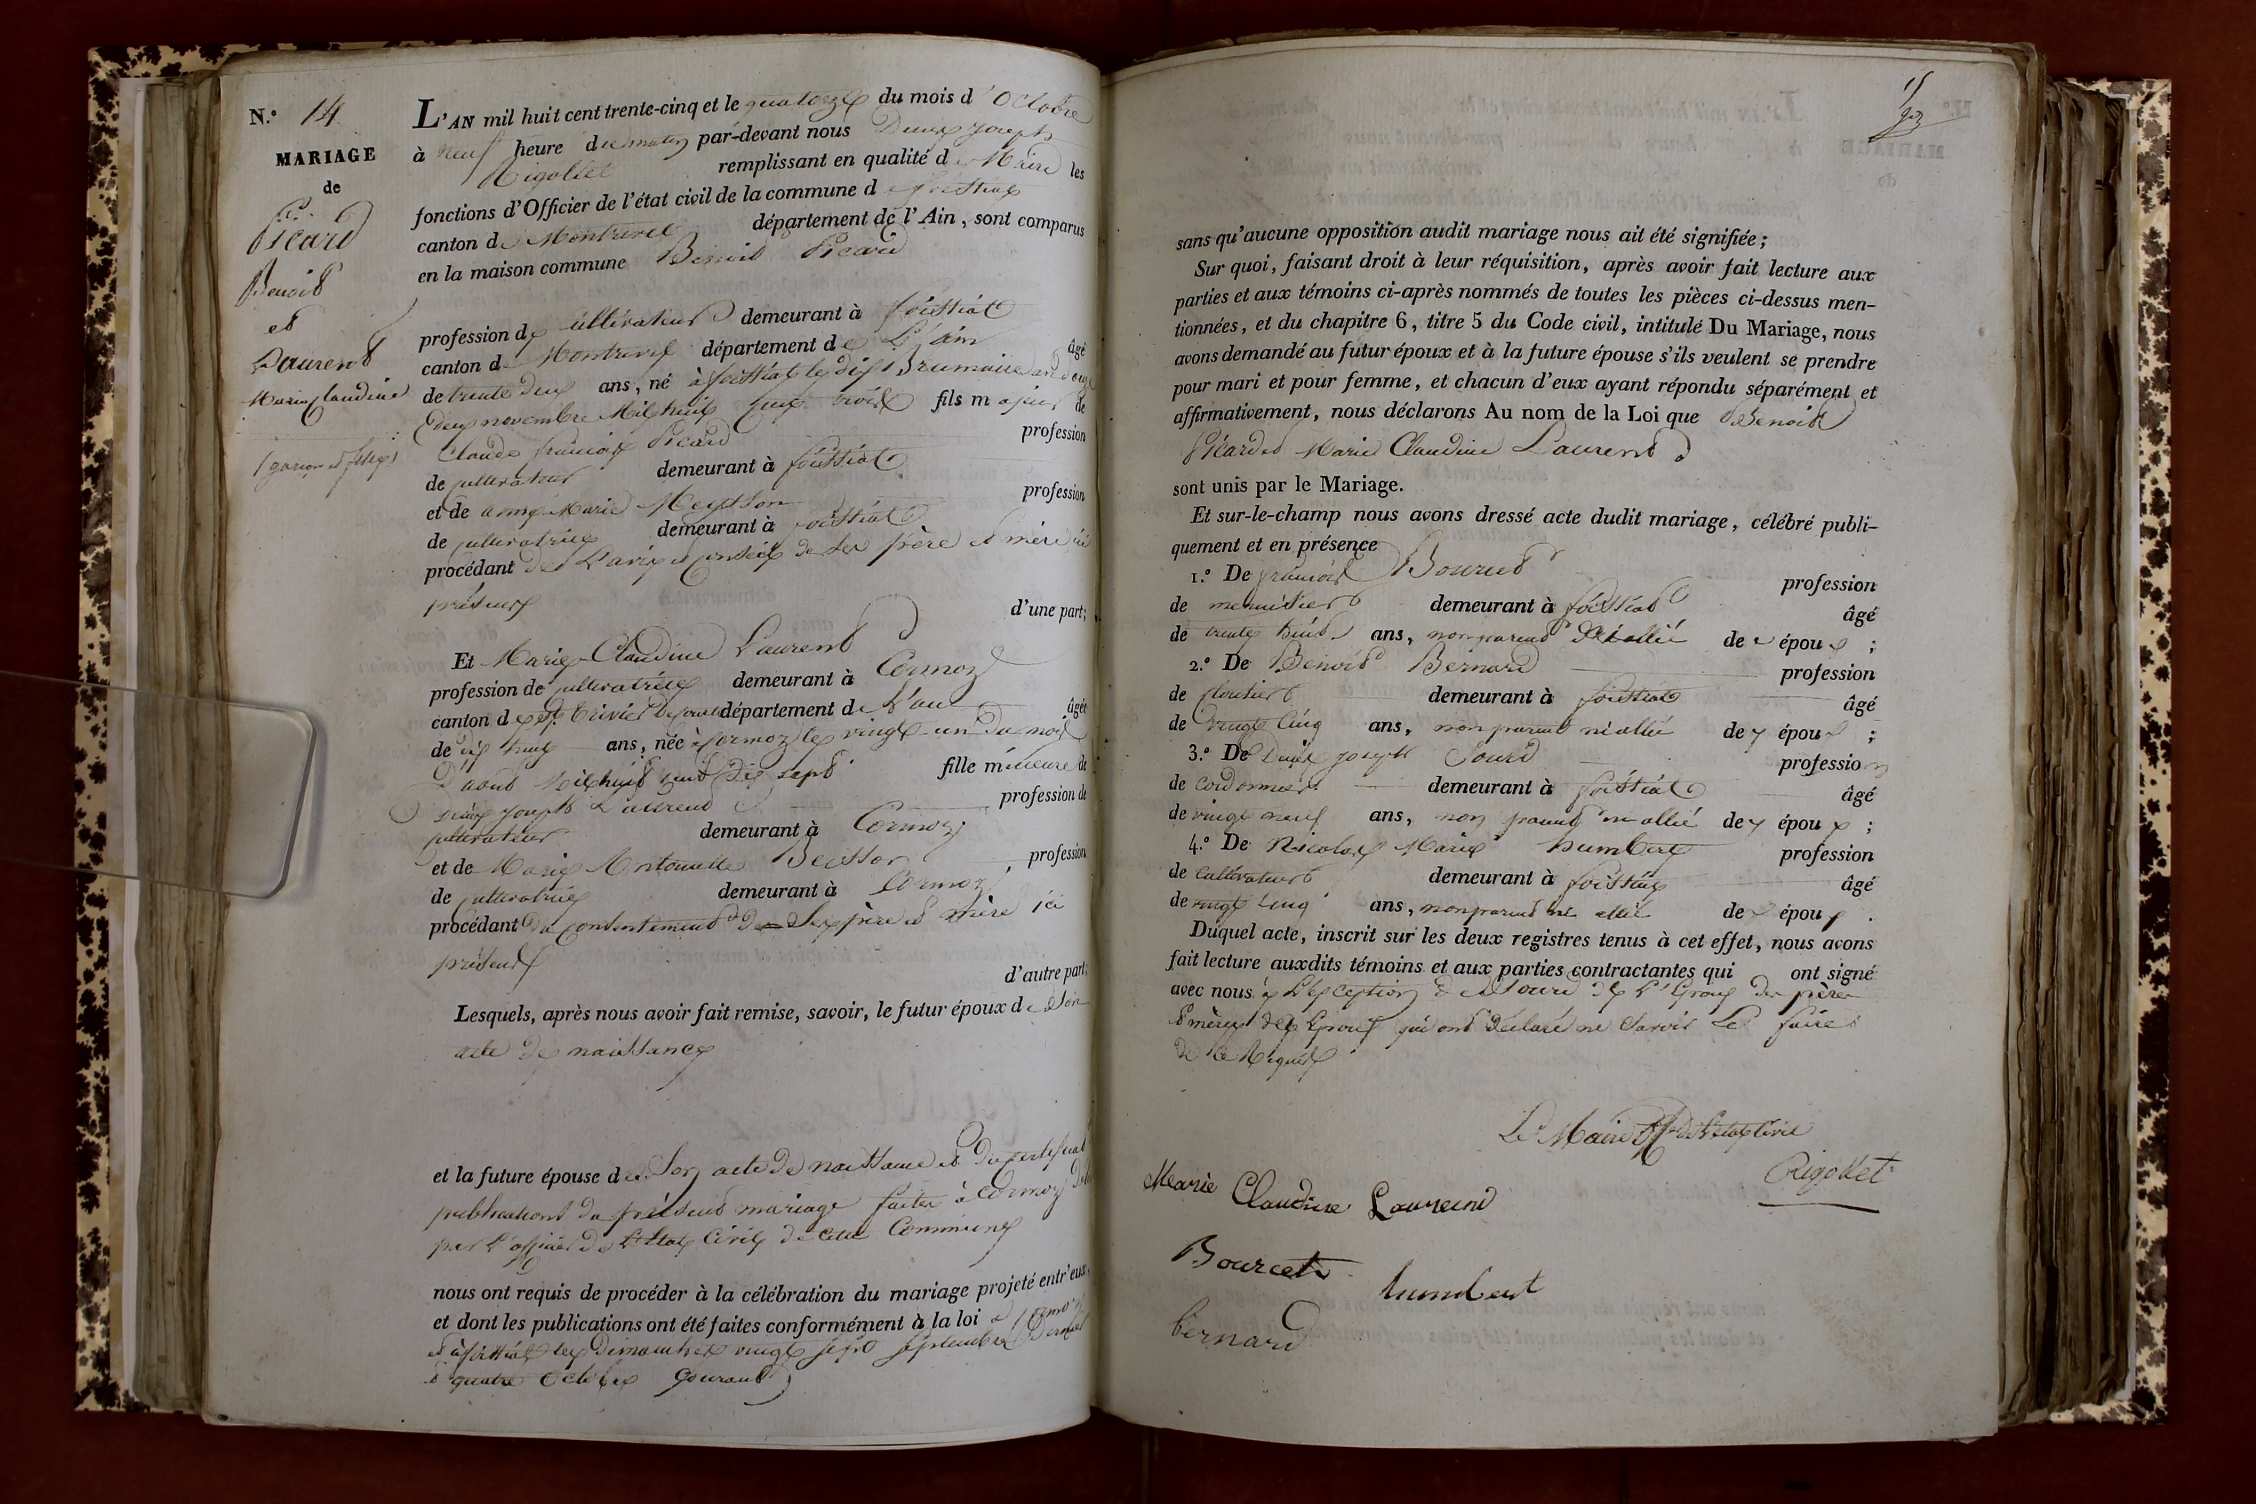 N.º 14
MARIAGE
de
Picard
Benoit
et
Laurent
Marie Claudine
(garçon et fille)
L'AN mil huit cent trente-cinq et le quatorze du mois d'Octobre
à neuf heure du matin par-devant nous Denis Joseph
Rigollet remplissant en qualité de Maire les
fonctions d'Officier de l'état civil de la commune de foissiat
canton de Montrevel département de l'Ain, sont comparus
en la maison commune Benoit Picard
profession de cultivateur demeurant à foissiat
canton de Montrevel département de L'ain âgé
de trente deux ans, né à foissiat le dix Brumaire an douze
deux novembre Mil huit cent trois fils majeur de
Claude françois Picard profession
de cultivateur demeurant à foissiat
et de anne Marie profession
de cultivatrice demeurant à foissiat
procédant de L'avis et conseil de Ses père et mère ici
présents d'une part;
Et Marie Claudine Laurent
profession de cultivatrice demeurant à Cormoz
canton de St. trivier de courtes département de L'ain âgée
de dix huit ans, née à Cormoz le vingt un du mois
D'aout Mil huit cent dix sept fille mineure de
Joseph Laurent profession de
cultivateur demeurant à Cormoz
et de Marie Antoinette profession
de cultivatrice demeurant à Cormoz
procédant du consentement de Ses père et mère ici
présents d'autre part;
Lesquels, après nous avoir fait remise, savoir, le futur époux de Son
acte de naissance
et la future épouse de Son acte de naissance et du certificat de
publications du présent mariage faites à Cormoz
par l'officier de L'Etat Civil de cette Commune
nous ont requis de procéder à la célébration du mariage projeté entr'eux,
et dont les publications ont été faites conformément à la loi à Cormoz
et à foissiat les Dimanches vingt sept septembre dernier
et quatre Octobre Courant
sans qu'aucune opposition audit mariage nous ait été signifiée;
Sur quoi, faisant droit à leur réquisition, après avoir fait lecture aux
parties et aux témoins ci-après nommés de toutes les pièces ci-dessus men-
tionnées, et du chapitre 6, titre 5 du Code civil, intitulé Du Mariage, nous
avons demandé au futur époux et à la future épouse s'ils veulent se prendre
pour mari et pour femme, et chacun d'eux ayant répondu séparément et
affirmativement, nous déclarons Au nom de la Loi que Benoit
Picard et Marie Claudine Laurent
sont unis par le Mariage.
Et sur-le-champ nous avons dressé acte dudit mariage, célébré publi-
quement et en présence
1.º De françois Bourcet profession
de menuisier demeurant à foissiat âgé
de trente huit ans, non parent ni allié des époux;
2.º De Benoit Bernard profession
de cloutier demeurant à foissiat âgé
de vingt cinq ans, non parent ni allié des époux;
3.º De Denis Joseph Sourd profession
de cordonnier demeurant à foissiat âgé
de vingt neuf ans, non parent ni allié des époux;
4.º De Nicolas Marie humbert profession
de Cultivateur demeurant à foissiat âgé
de vingt cinq ans, non parent ni allié des époux.
Duquel acte, inscrit sur les deux registres tenus à cet effet, nous avons
fait lecture auxdits témoins et aux parties contractantes qui ont signé
avec nous à L'exception de Sourd de L'Epoux des pères
et mères des Epoux qui ont déclaré ne Savoir Le faire
de ce Requis
Le Maire off. de L'état Civil
Rigollet
Marie Claudine Laurend
Bourcet
humbert
bernard